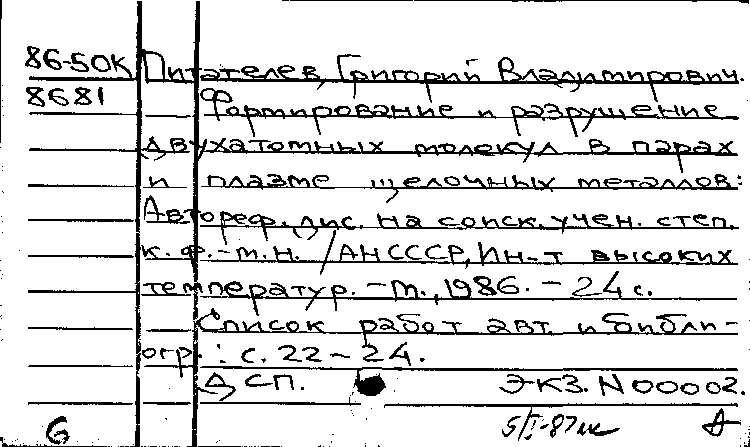 86-50К Питателев, Григорий Владимирович.
8681 Формирование и разрушение
двухатомных молекул в парах
и плазме щелочных металлов:
Автореф. дис. на соиск. учен. степ.
к. ф.-т. н. / АН СССР, Ин-т высоких
температур. - т., 1986. - 24 с.
Список работ авт. и библи-
огр.: с. 22-24.
ДСП. ЭКЗ. N 00002.
6 5/I-87 А